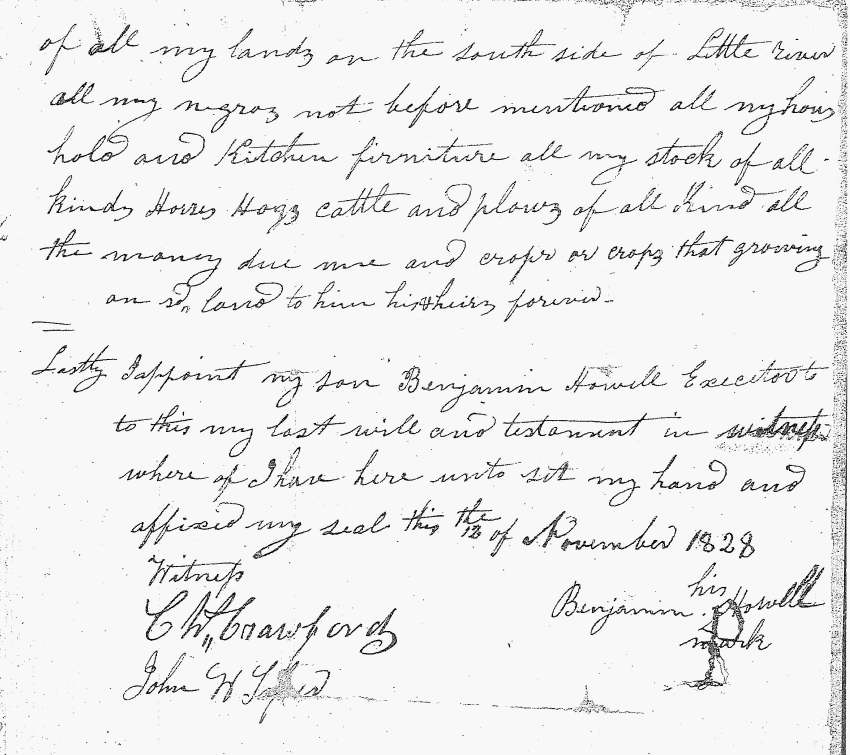 of all my lands on the south side of Little river
all my negros not before mentioned all my hous
hold and Kitchen firniture all my stock of all
kinds Horses Hogs cattle and plows of all Kind all
the money due me and crops or crops that growing
on sd,, land to him his heirs forever
Lastly I appoint my son Benjamin Howell Execitor to
to this my last will and testament in witness
where of I have here unto set my hand and
affixed my seal this the 12 of November 1828
Witness
his
C W,, Crawford
Benjamin Howell
mark
John W